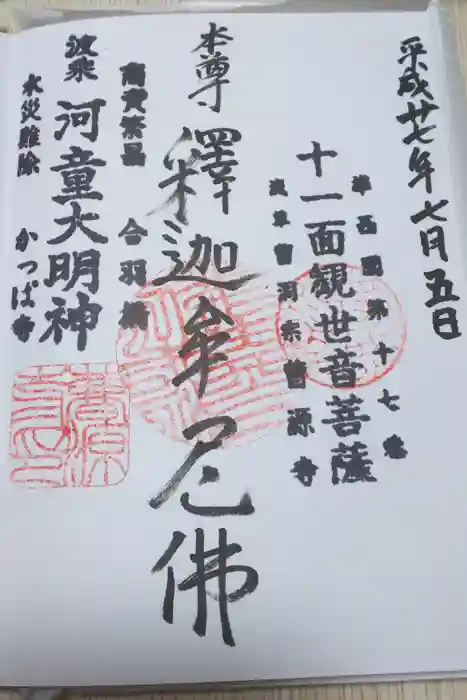 平成廿七年七月五日
準西國第十七番
十一面観世音菩薩
浅草曹洞宗曹源寺
本尊
釋迦牟尼佛
商売繁昌 合羽橋
波乗 河童大明神
水災難除 かっぱ寺
曹源寺印